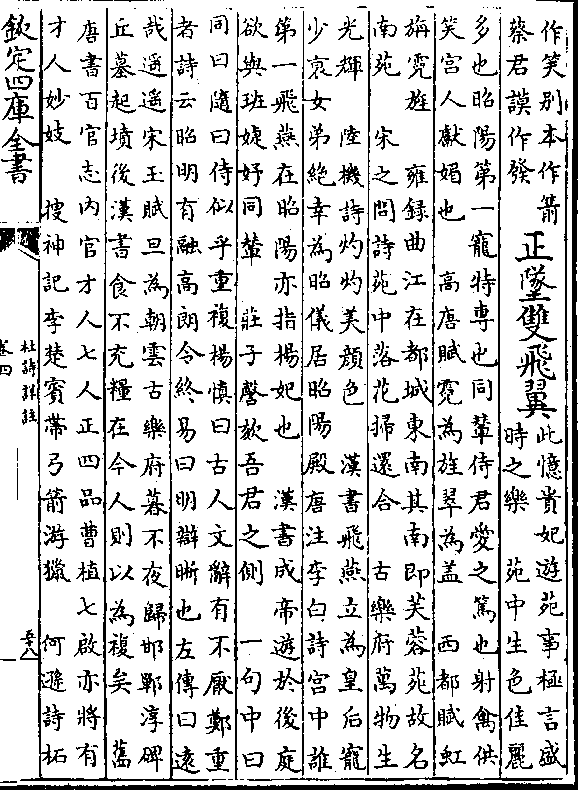 作笑别本作箭
蔡君謨作發
正墜雙飛翼
此憶貴妃遊苑事極言盛
時之樂　苑中生色佳麗
多也昭陽第一寵特専也同輦侍君愛之篤也射禽供
笑宫人獻媚也　高唐賦霓為旌翠為蓋　西都賦虹
旃霓旌　雍録曲江在都城東南其南即芙蓉苑故名
南苑　宋之問詩苑中落花掃還合　古樂府萬物生
光輝　陸機詩灼灼美顔色　漢書飛燕立為皇后寵
少衰女弟絶幸為昭儀居昭陽殿唐注李白詩宫中誰
第一飛燕在昭陽亦指楊妃也　漢書成帝遊於後庭
欲與班婕妤同輦　莊子謦欬吾君之側　一句中曰
同曰隨曰侍似乎重複楊慎曰古人文辭有不厭鄭重
者詩云昭明有融高朗令終易曰明辯晰也左傳曰逺
哉遥遥宋玉賦旦為朝雲古樂府暮不夜歸邯鄲淳碑
丘墓起墳後漢書食不充糧在今人則以為複矣　舊
唐書百官志内官才人七人正四品曹植七啟亦將有
才人妙妓　搜神記李楚賔帶弓箭游獵　何遜詩柘
欽定四庫全書
杜詩詳註
卷四